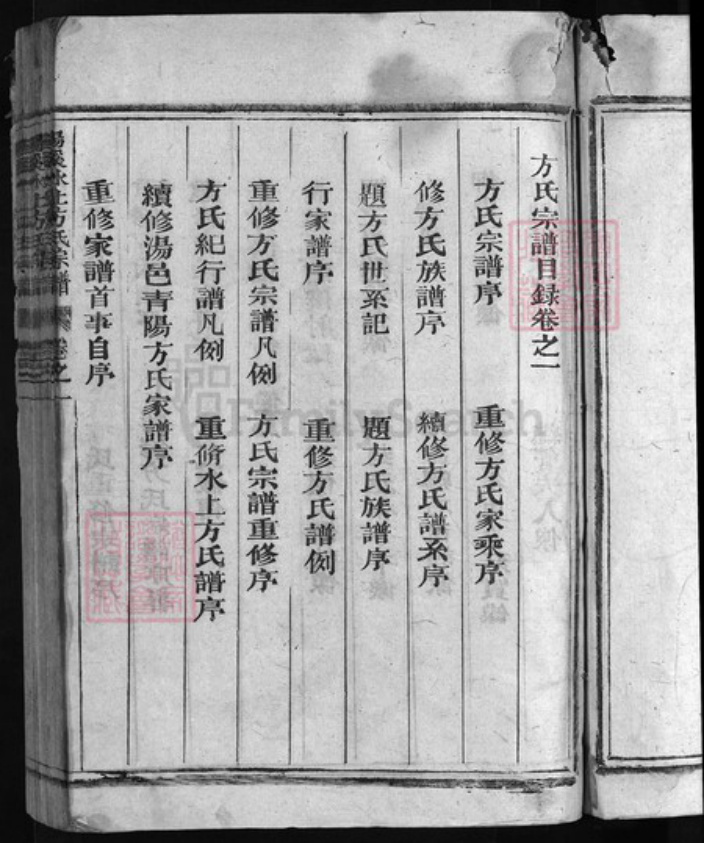 方氏宗譜目録卷之一
方氏宗譜序　重修方氏家乘序
修方氏族譜序　續修方氏譜系序
題方氏世系記　題方氏族譜序
行家譜序　重修方氏譜例
重修方氏宗譜凡例　方氏宗譜重修序
方氏紀行譜凡例　重脩水上方氏譜序
續修湯邑青陽方氏家譜序
重修家譜首事自序
湯溪水上方氏宗譜　卷之一
FamilySearch